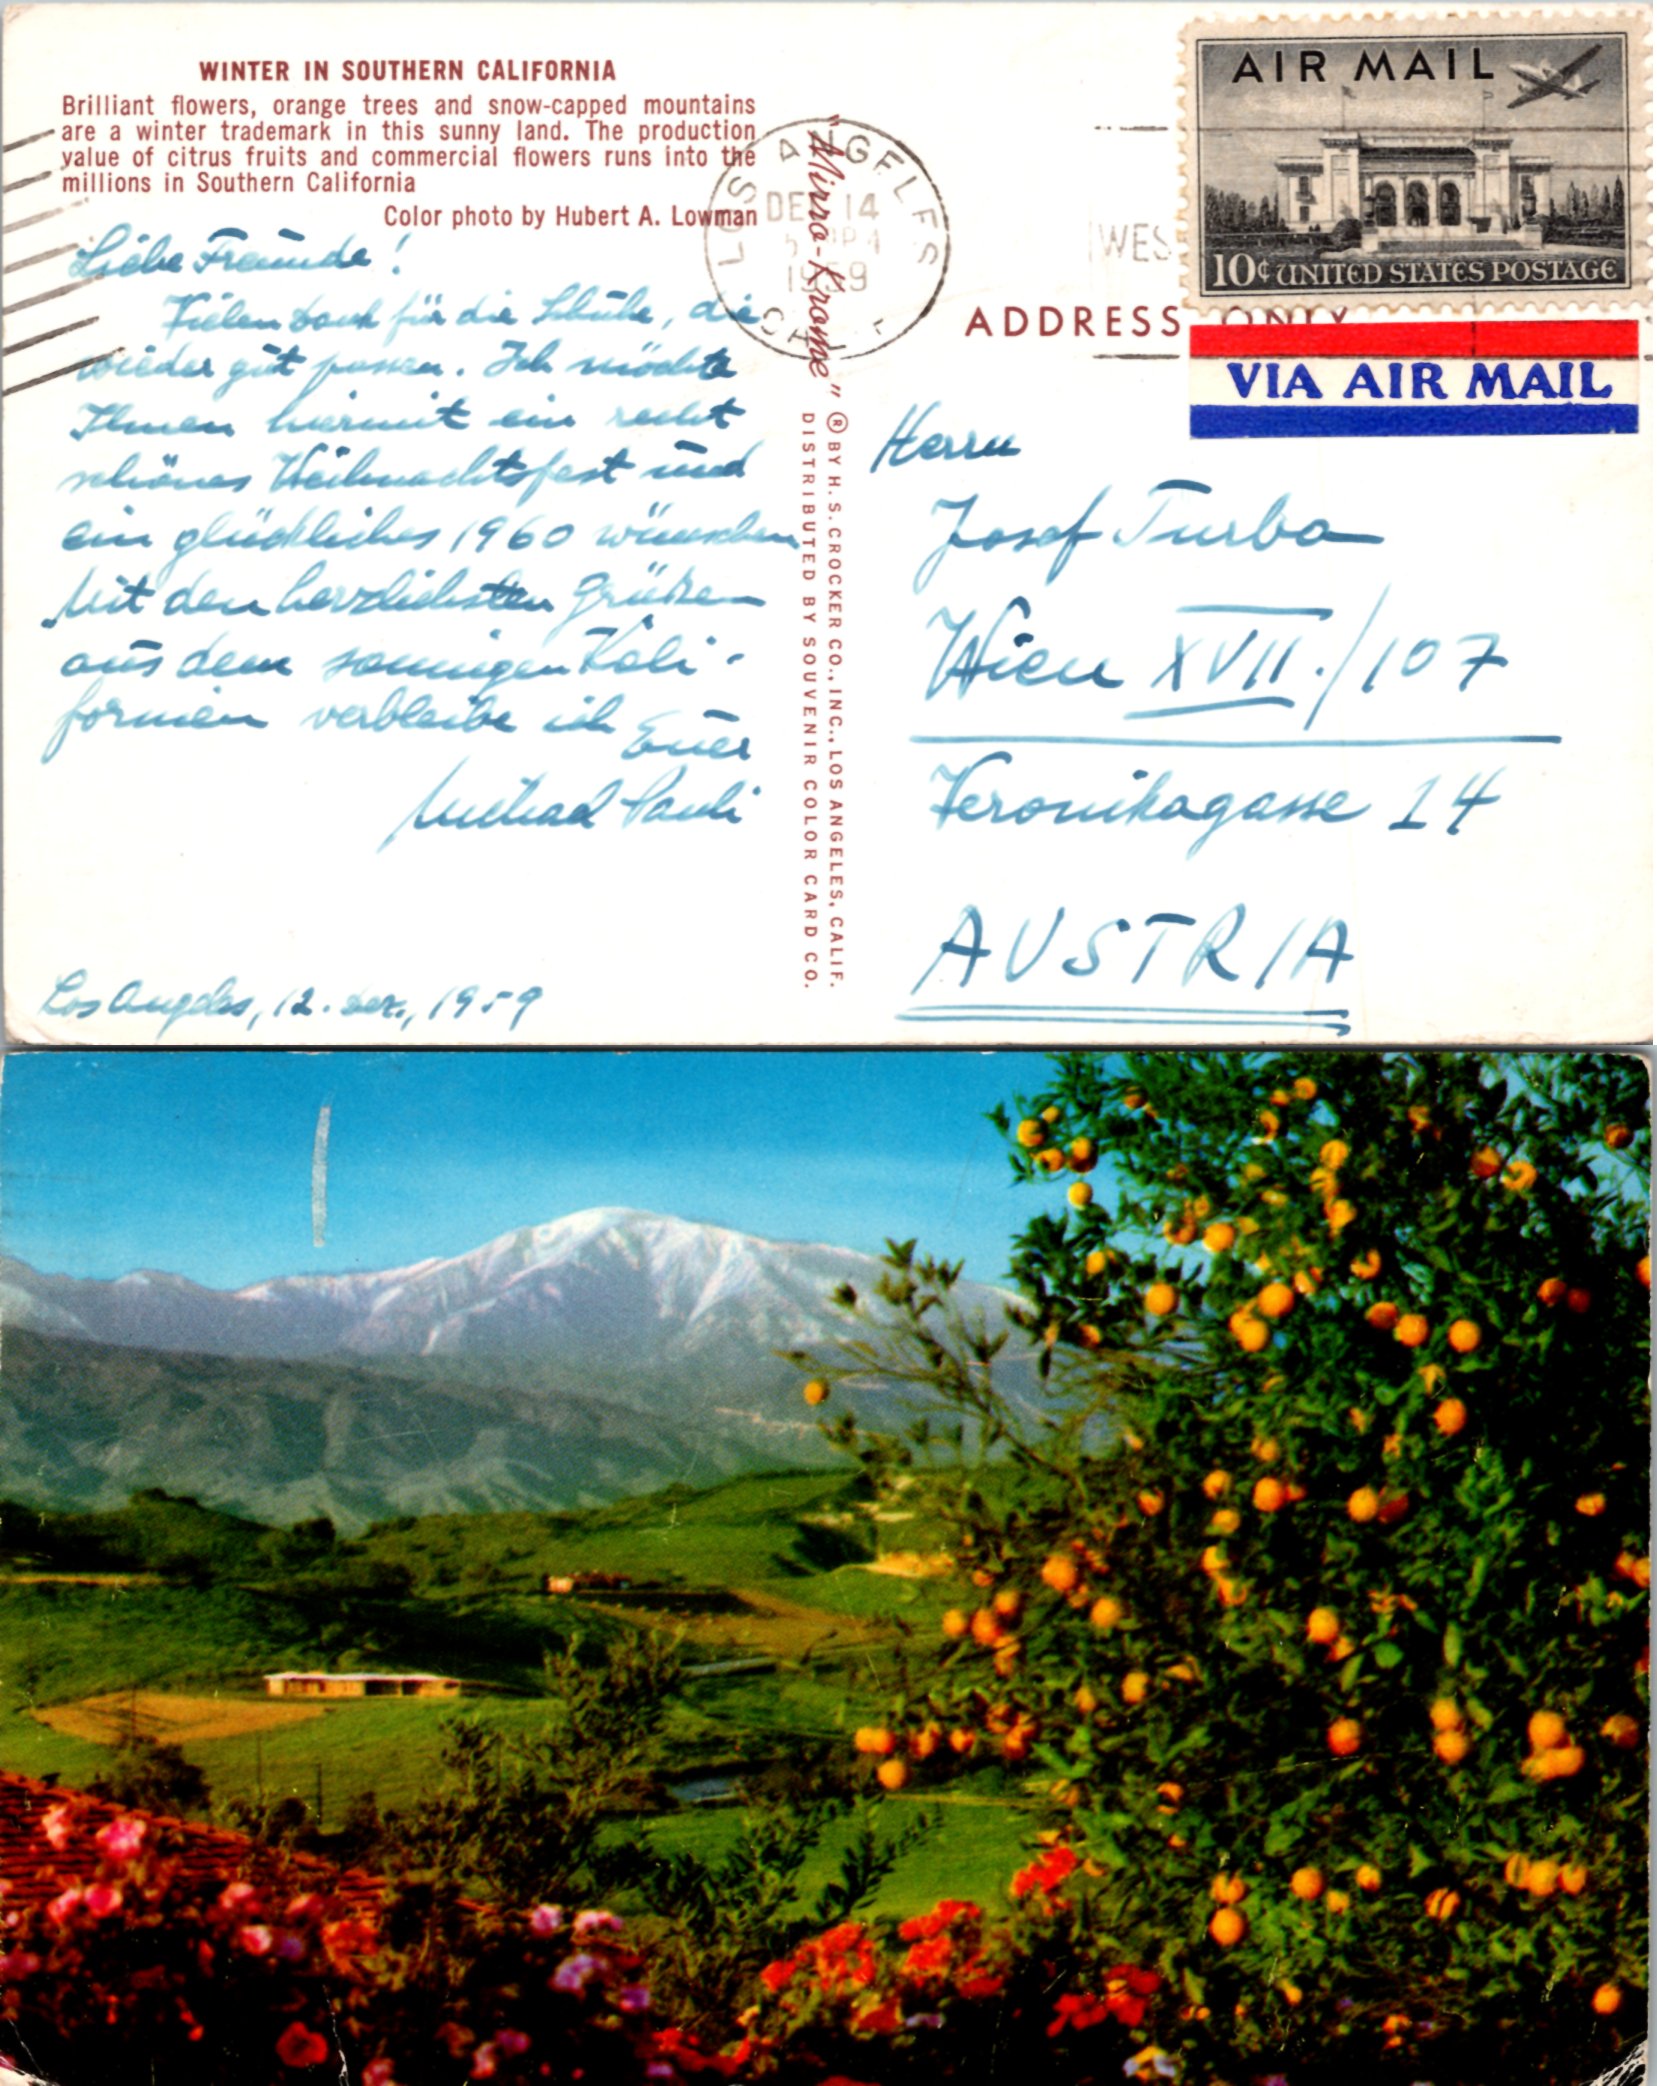 WINTER IN SOUTHERN CALIFORNIA
Brilliant flowers, orange trees and snow-capped mountains
are a winter trademark in this sunny land. The production
value of citrus fruits and commercial flowers runs into the
millions in Southern California
Color photo by Hubert A. Lowman
Liebe Freunde!
Vielen Dank für die Schuhe, die
wieder gut passen. Ich möchte
Ihnen hiermit ein recht
schönes Weihnachtsfest und
ein glückliches 1960 wünschen
Mit den herzlichsten Grüßen
aus dem sonnigen Kali-
fornien verbleibe ich
Euer
Michael Pauli
Los Angeles, 12. Dez., 1959
"Mirro-Krome" ® BY H. S. CROCKER CO., INC., LOS ANGELES, CALIF.
DISTRIBUTED BY SOUVENIR COLOR CARD CO.
LOS ANGELES
DEC 14
PM
1959
CALIF
WES
AIR MAIL
10¢ UNITED STATES POSTAGE
ADDRESS ONLY
VIA AIR MAIL
Herrn
Josef Turba
Wien XVII./107
Veronikagasse 14
AUSTRIA